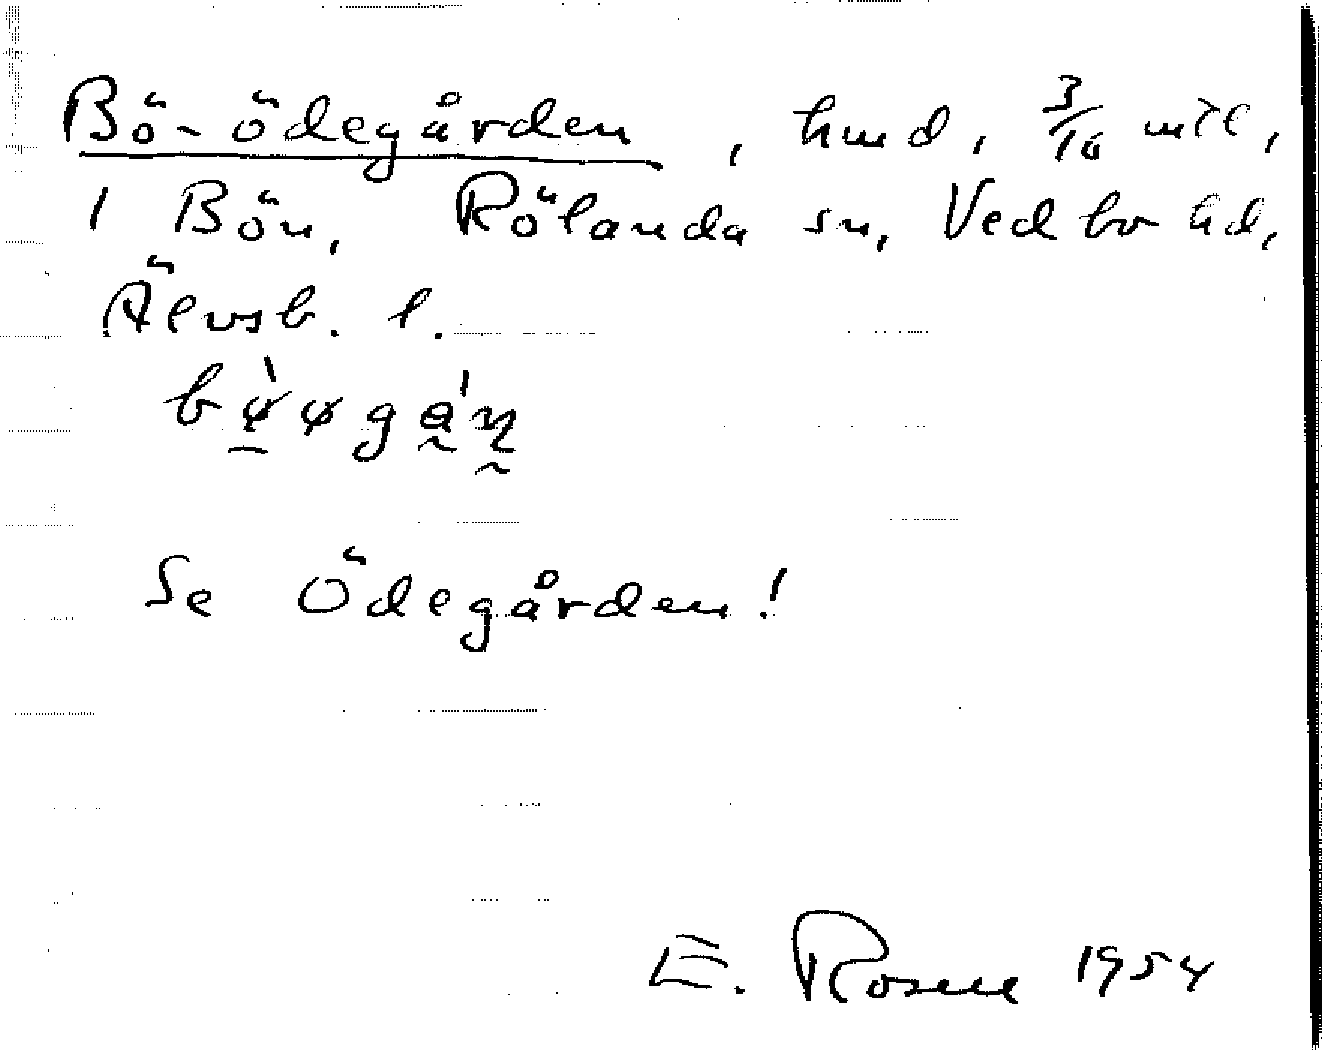 Bö-ödegården, hmd, 3/16 mtl,
1 Bön, Rölanda sn, Vedbo hd,
Älvsb. l.
Se Ödegården!
E. Rosell 1954